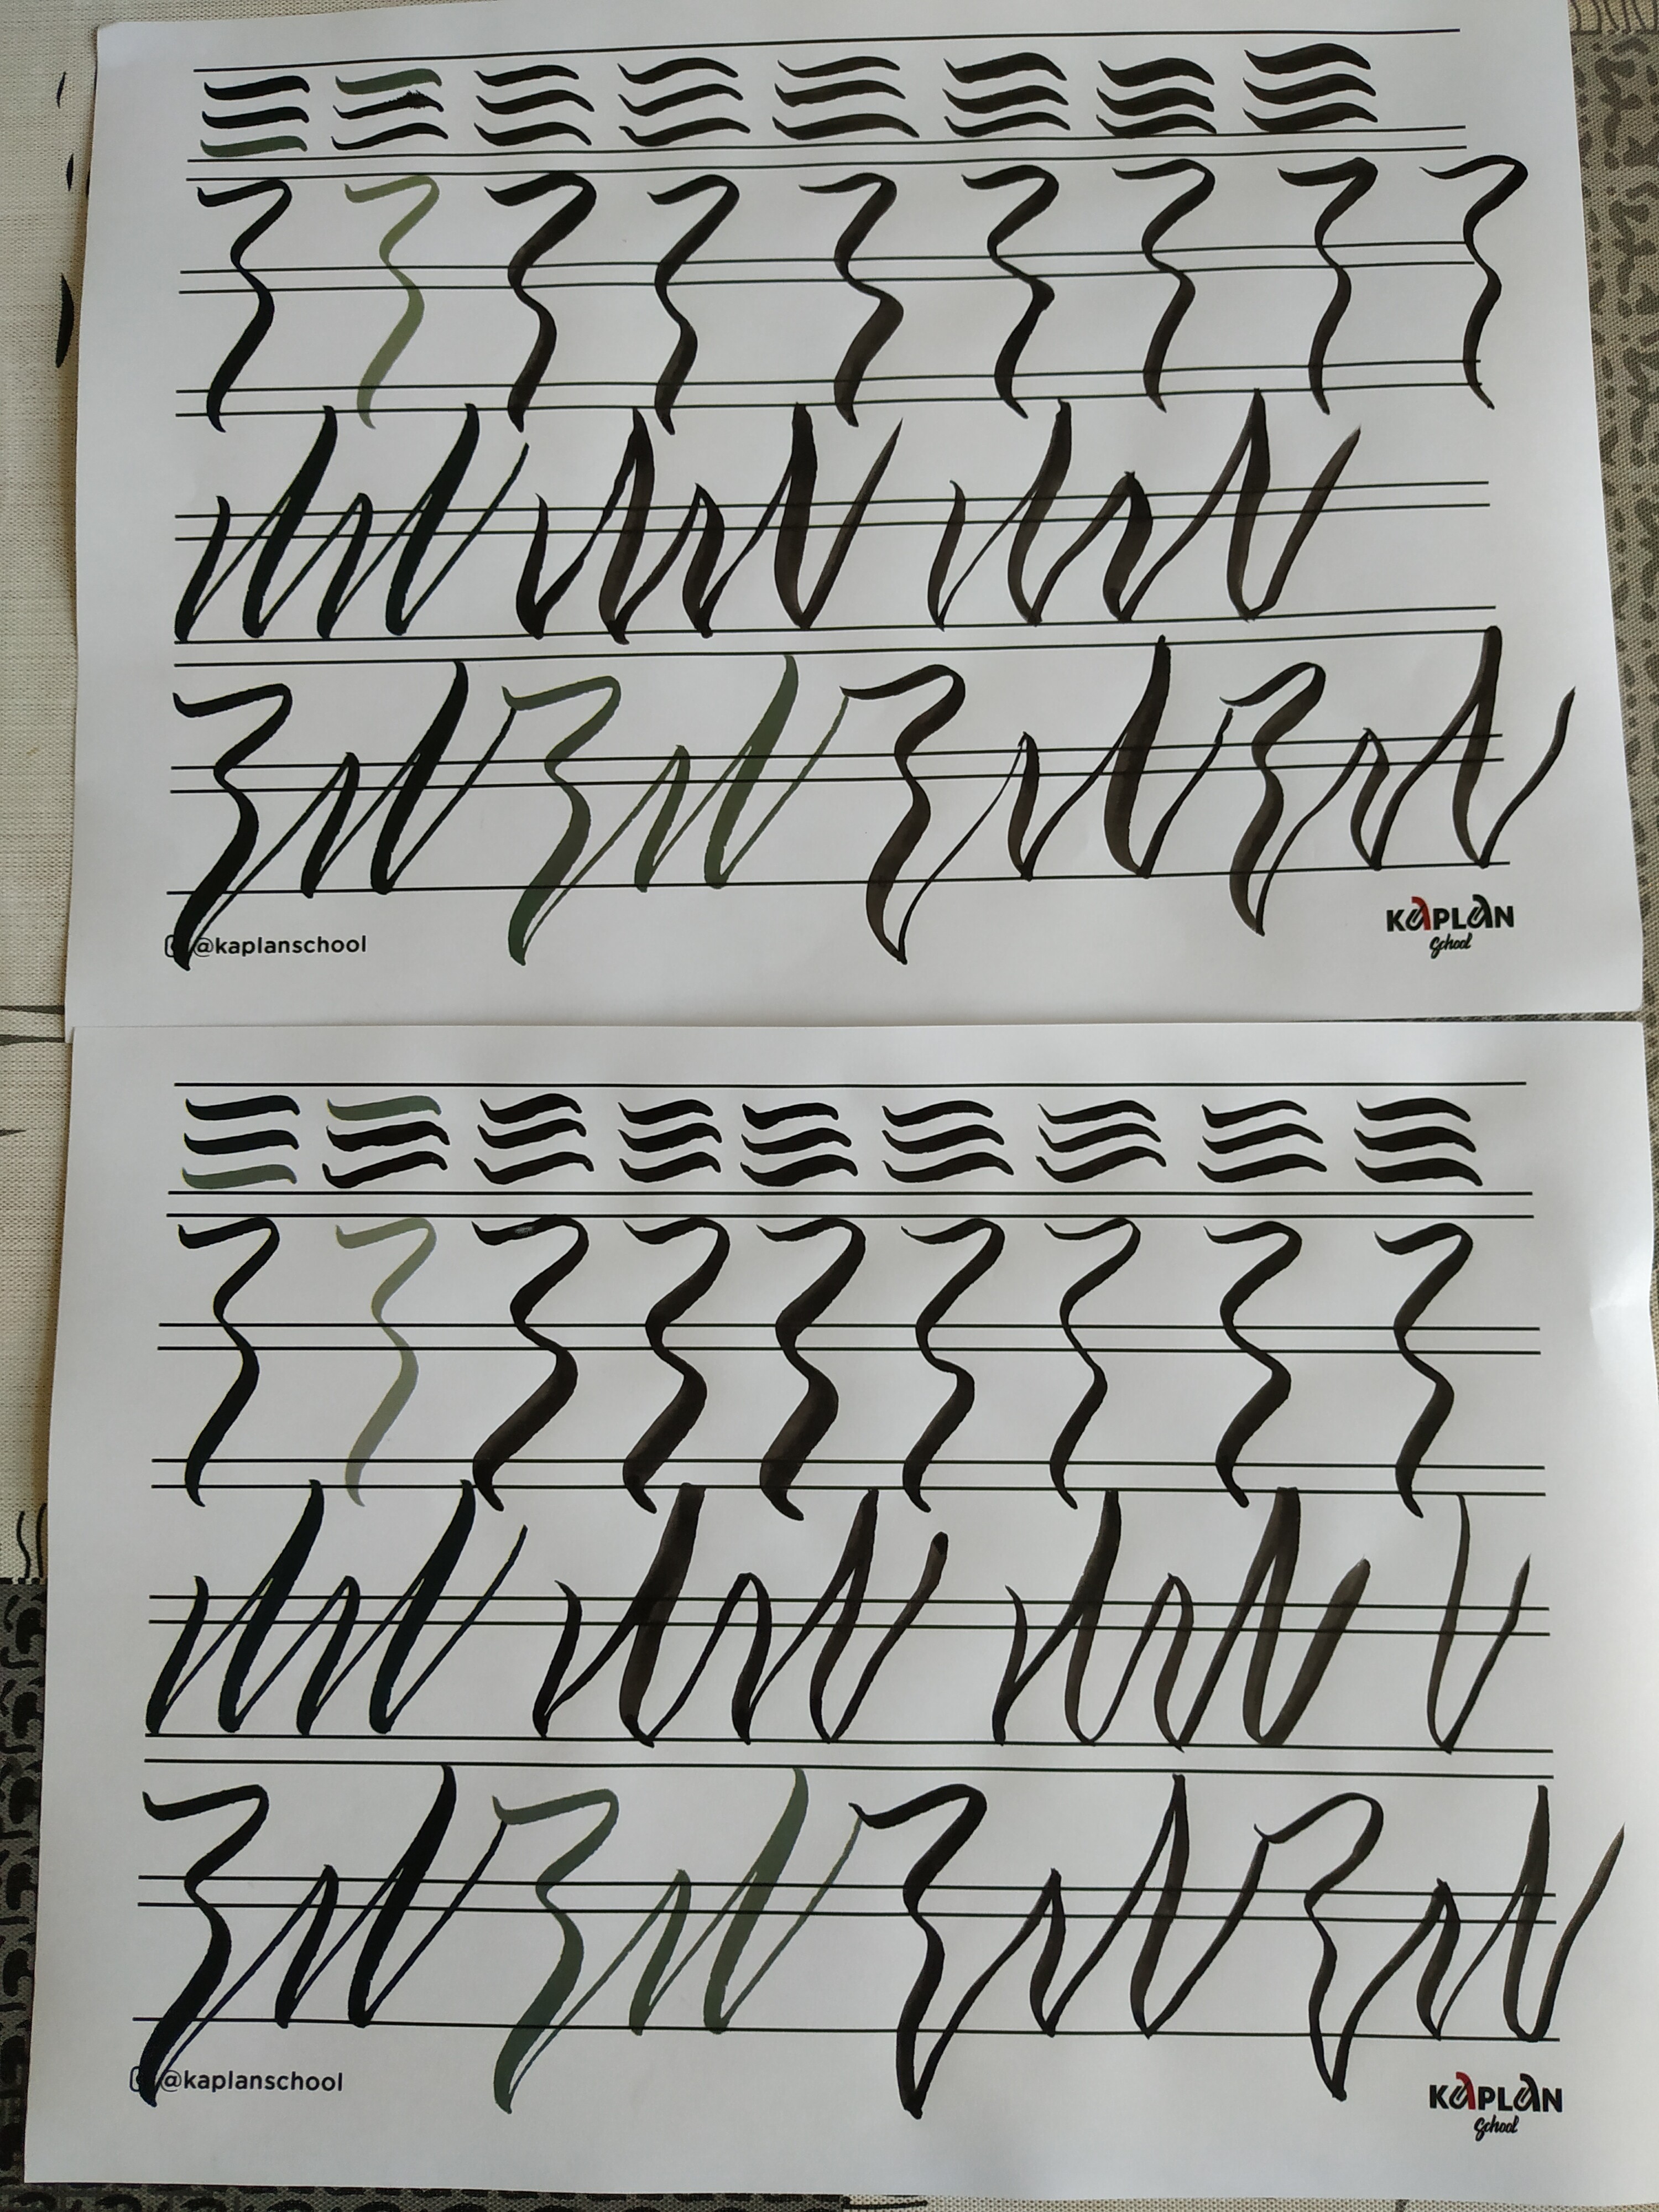 @kaplanschool
KAPLAN
School
@kaplanschool
KAPLAN
School